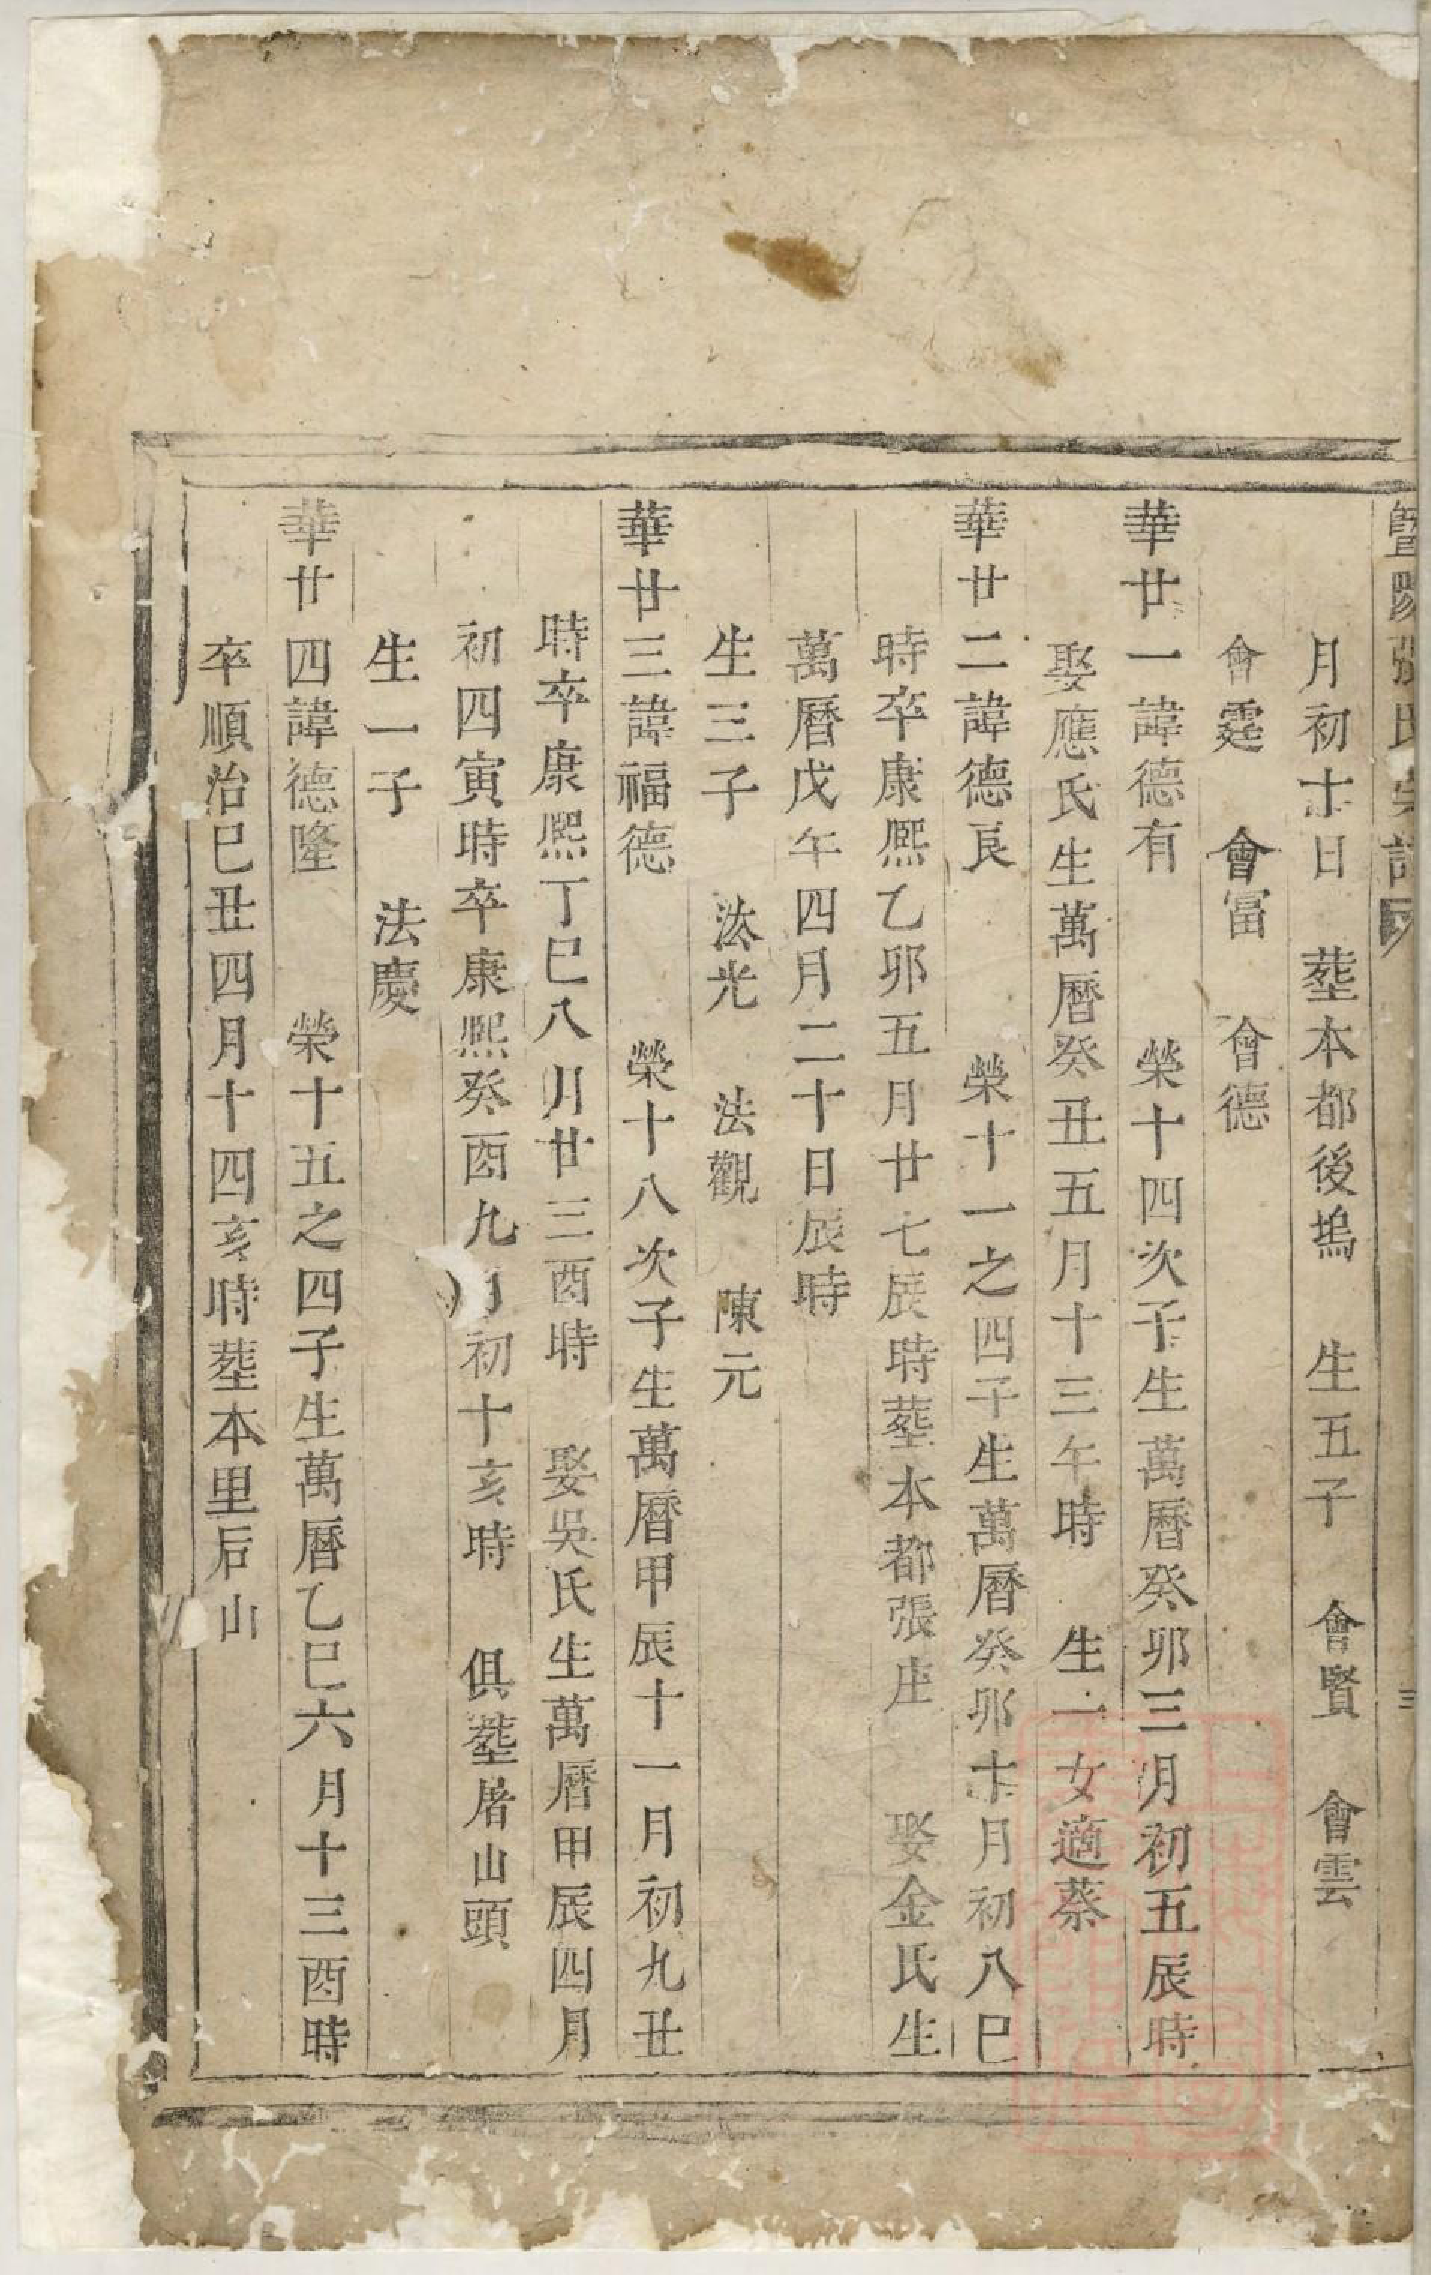 暨陽張氏宗譜
月初十日　塟本都後塢　生五子　會賢　會雲
會霆　會冨　會德
華廿一諱德有　榮十四次子生萬曆癸卯三月初五辰時
娶應氏生萬曆癸丑五月十三午時　生一女適蔡
華廿二諱德良　榮十一之四子生萬曆癸卯十月初八巳
時卒康熈乙卯五月廿七辰時塟本都張庄　娶金氏生
萬曆戊午四月二十日辰時
生三子　法光　法觀　陳元
華廿三諱福德　榮十八次子生萬曆甲辰十一月初九丑
時卒康熈丁巳八月廿三酉時　娶吳氏生萬曆甲辰四月
初四寅時卒康熈癸酉九月初十亥時　俱塟屠山頭
生一子　法慶
華廿四諱德隆　榮十五之四子生萬曆乙巳六月十三酉時
卒順治巳丑四月十四亥時塟本里后山